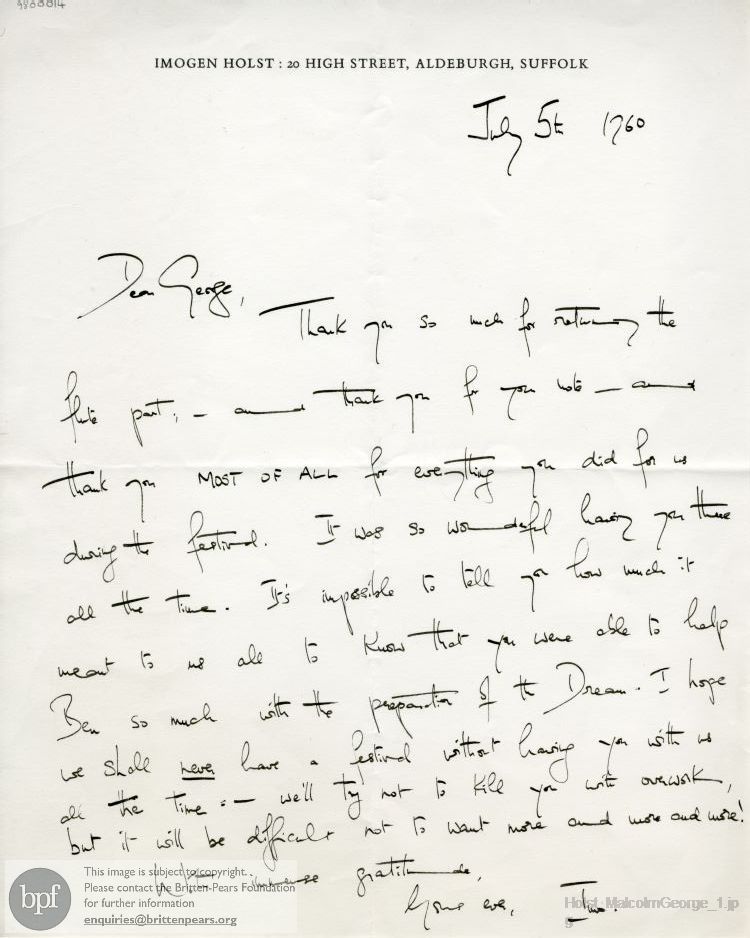 IMOGEN HOLST : 20 HIGH STREET, ALDEBURGH, SUFFOLK
July 5th 1960
Dear George,
Thank you so much for returning the
flute part, – and thank you for your note – and
thank you MOST OF ALL for everything you did for us
during the festival. It was so wonderful having you there
all the time. It's impossible to tell you how much it
meant to us all to know that you were able to help
Ben so much with the preparation of the Dream. I hope
we shall never have a festival without having you with us
all the time :– we'll try not to kill you with overwork,
but it will be difficult not to want more and more and more!
With immense gratitude,
Yours ever, Imo.
bpf
This image is subject to copyright.
Please contact the Britten-Pears Foundation
for further information
enquiries@brittenpears.org
Holst_MalcolmGeorge_1.jp
g